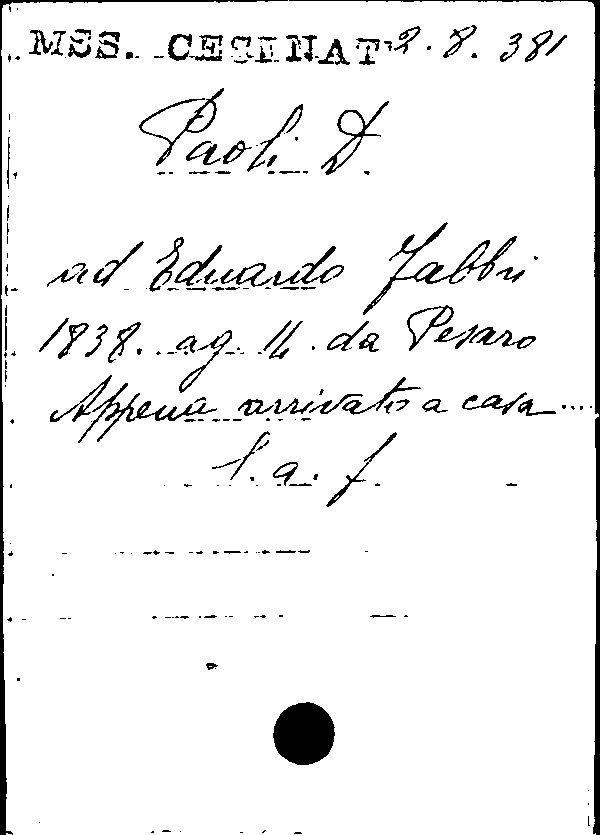 MSS. CESENAT 2. 8. 381
Paoli D.
ad Eduardo Fabbri
1838. ag. 14. da Pesaro
Appena arrivato a casa....
l. a. f.